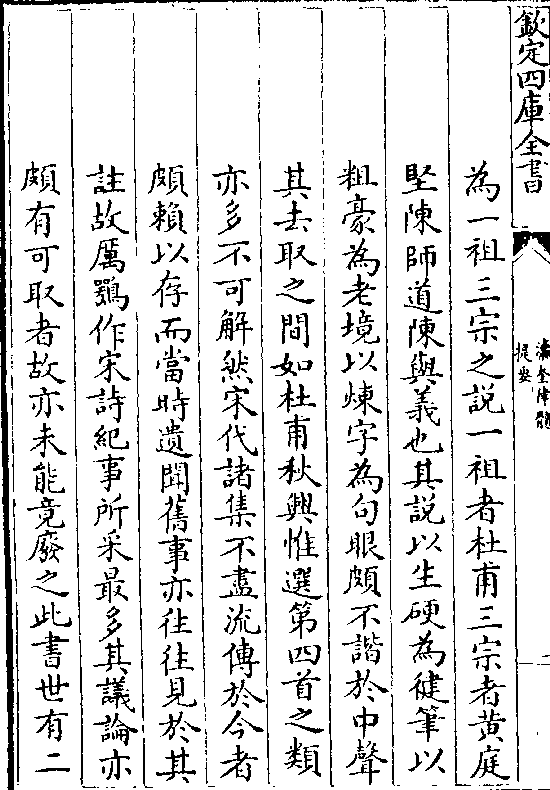 欽定四庫全書
瀛奎律髓
提要
為一祖三宗之説一祖者杜甫三宗者黄庭
堅陳師道陳與義也其説以生硬為健筆以
粗豪為老境以煉字為句眼頗不諧於中聲
其去取之間如杜甫秋興惟選第四首之類
亦多不可解然宋代諸集不盡流傳於今者
頗賴以存而當時遺聞舊事亦往往見於其
註故厲鶚作宋詩紀事所采最多其議論亦
頗有可取者故亦未能竟廢之此書世有二